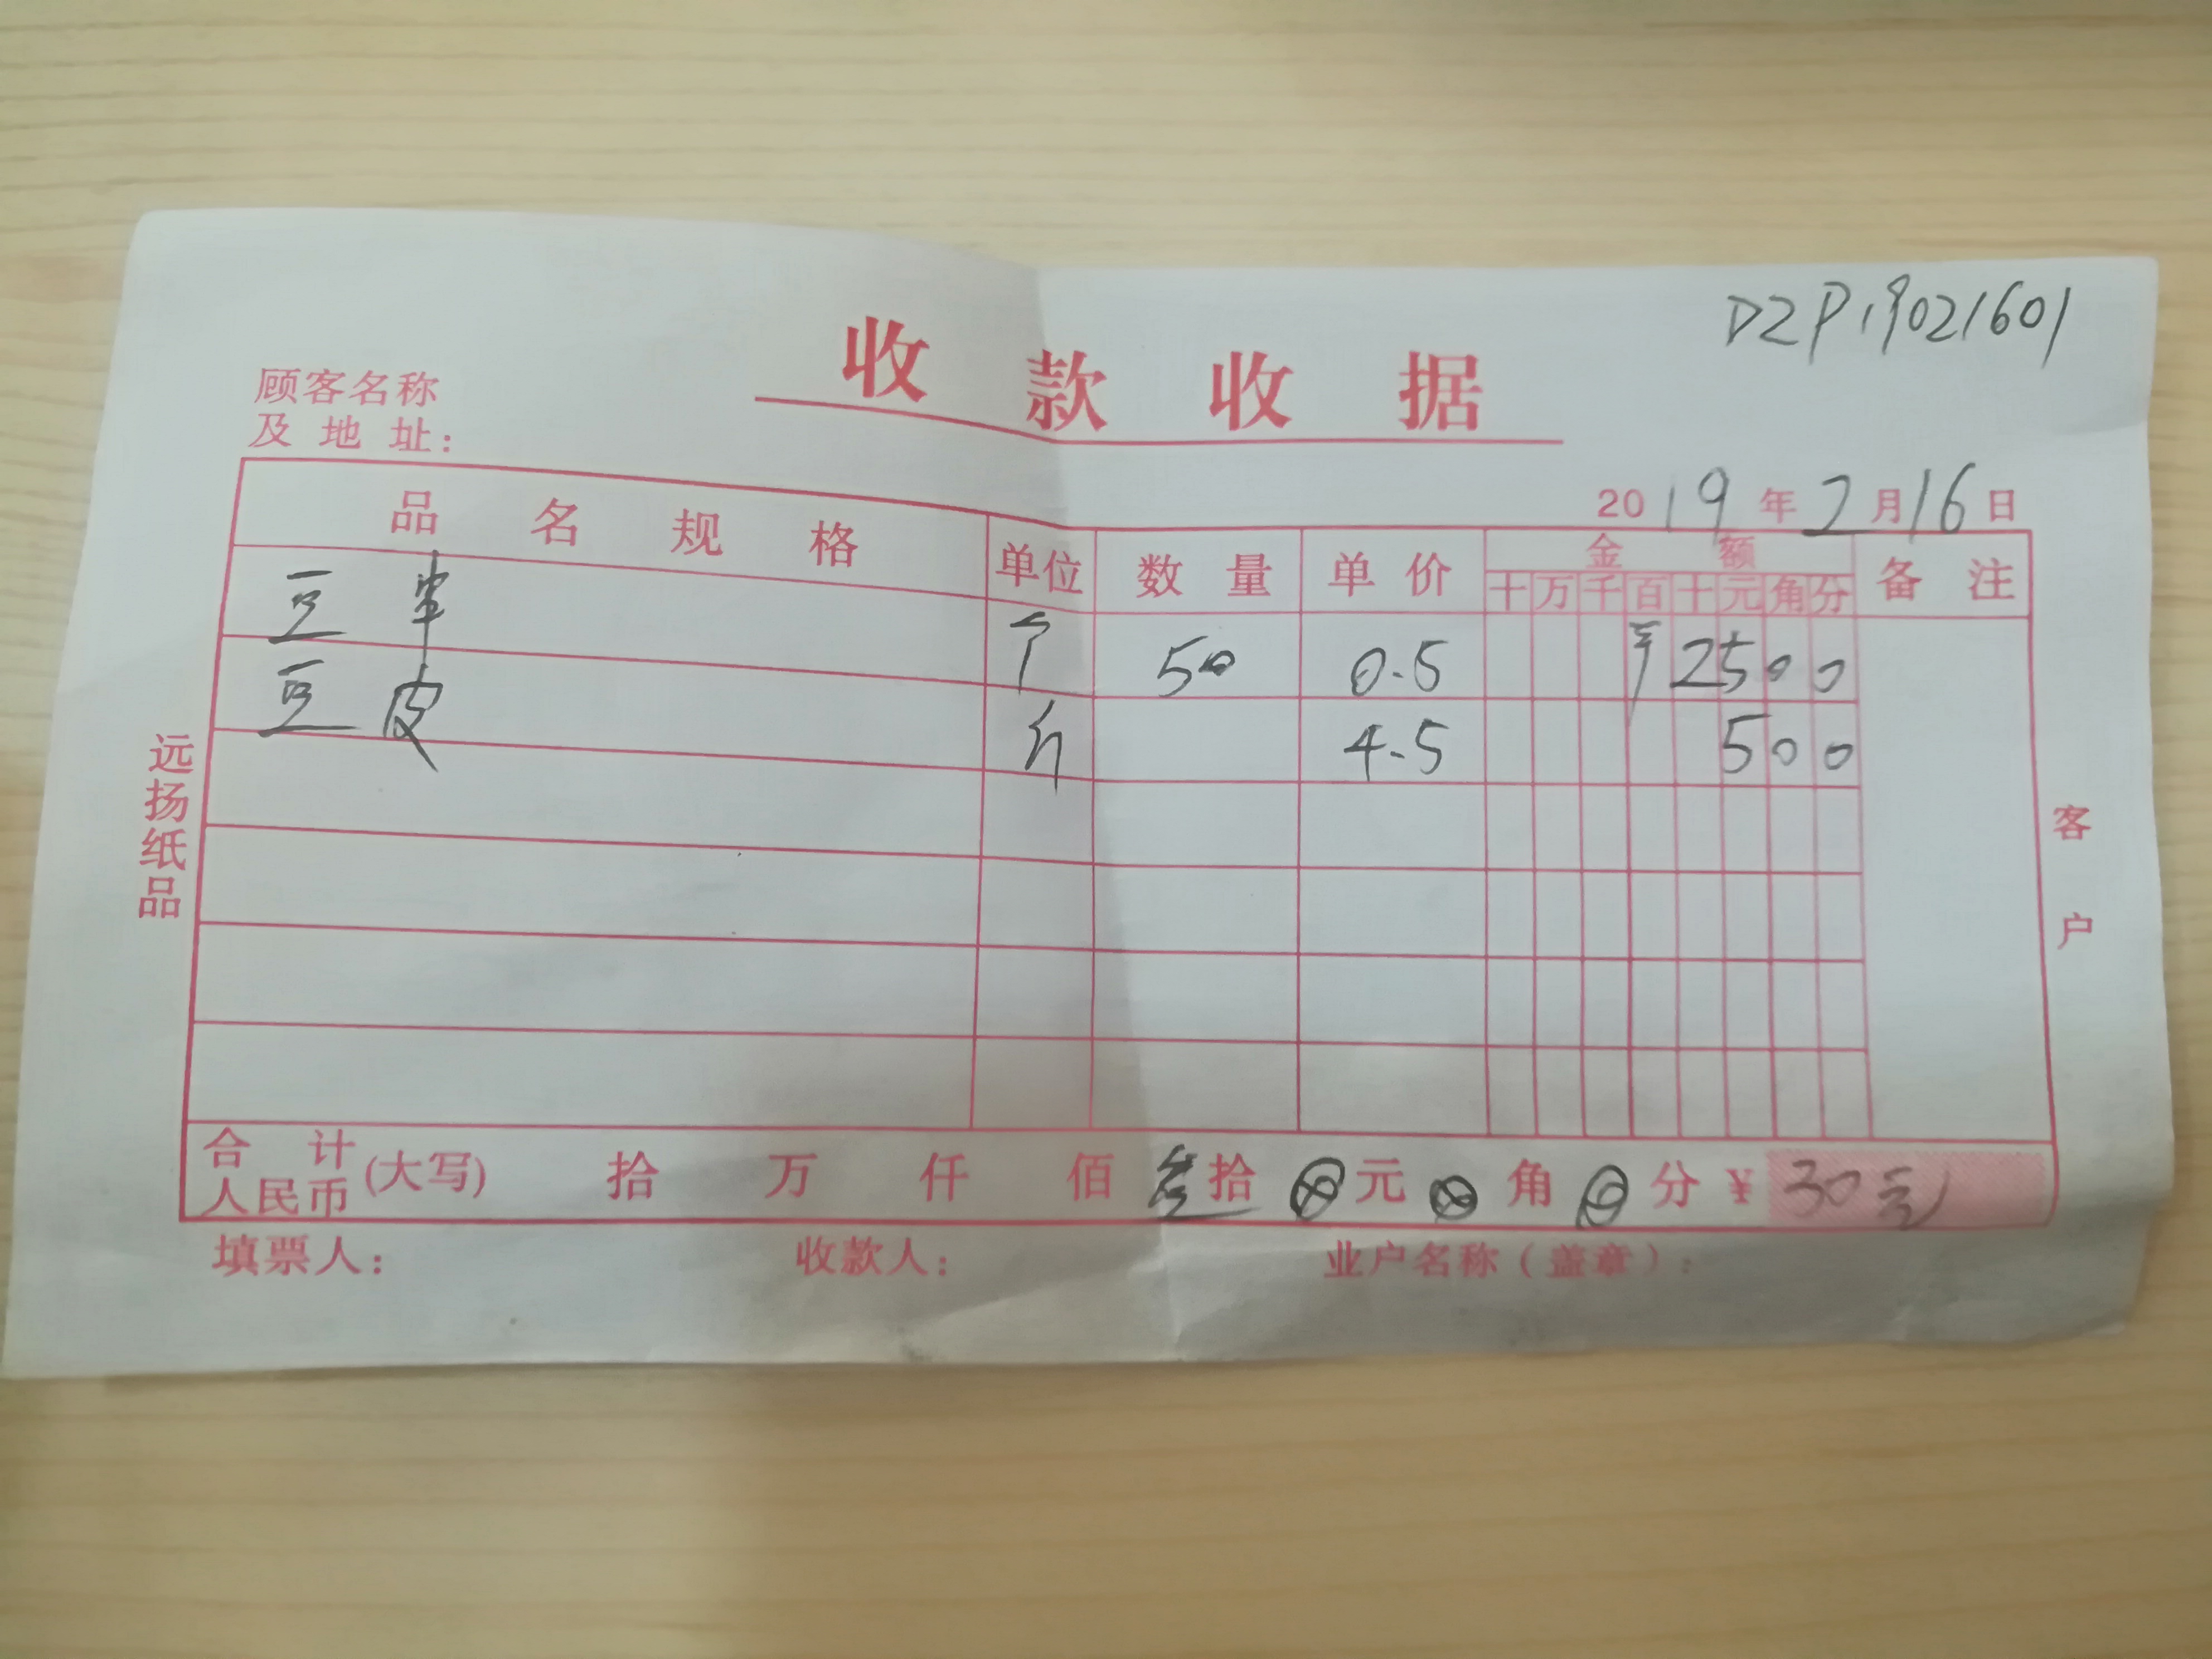 DZP19021601
收款收据
顾客名称
及地址:
2019年2月16日
品名规格 单位 数量 单价 金额 备注
十万千百十元角分
豆 个 50 0.5 ¥2500
豆皮 斤 4.5 500
远扬纸品
客户
合计人民币(大写) 拾 万 仟 佰 叁拾 ⊗元 ⊗角 ⊗分 ¥30元
填票人: 收款人: 业户名称(盖章):